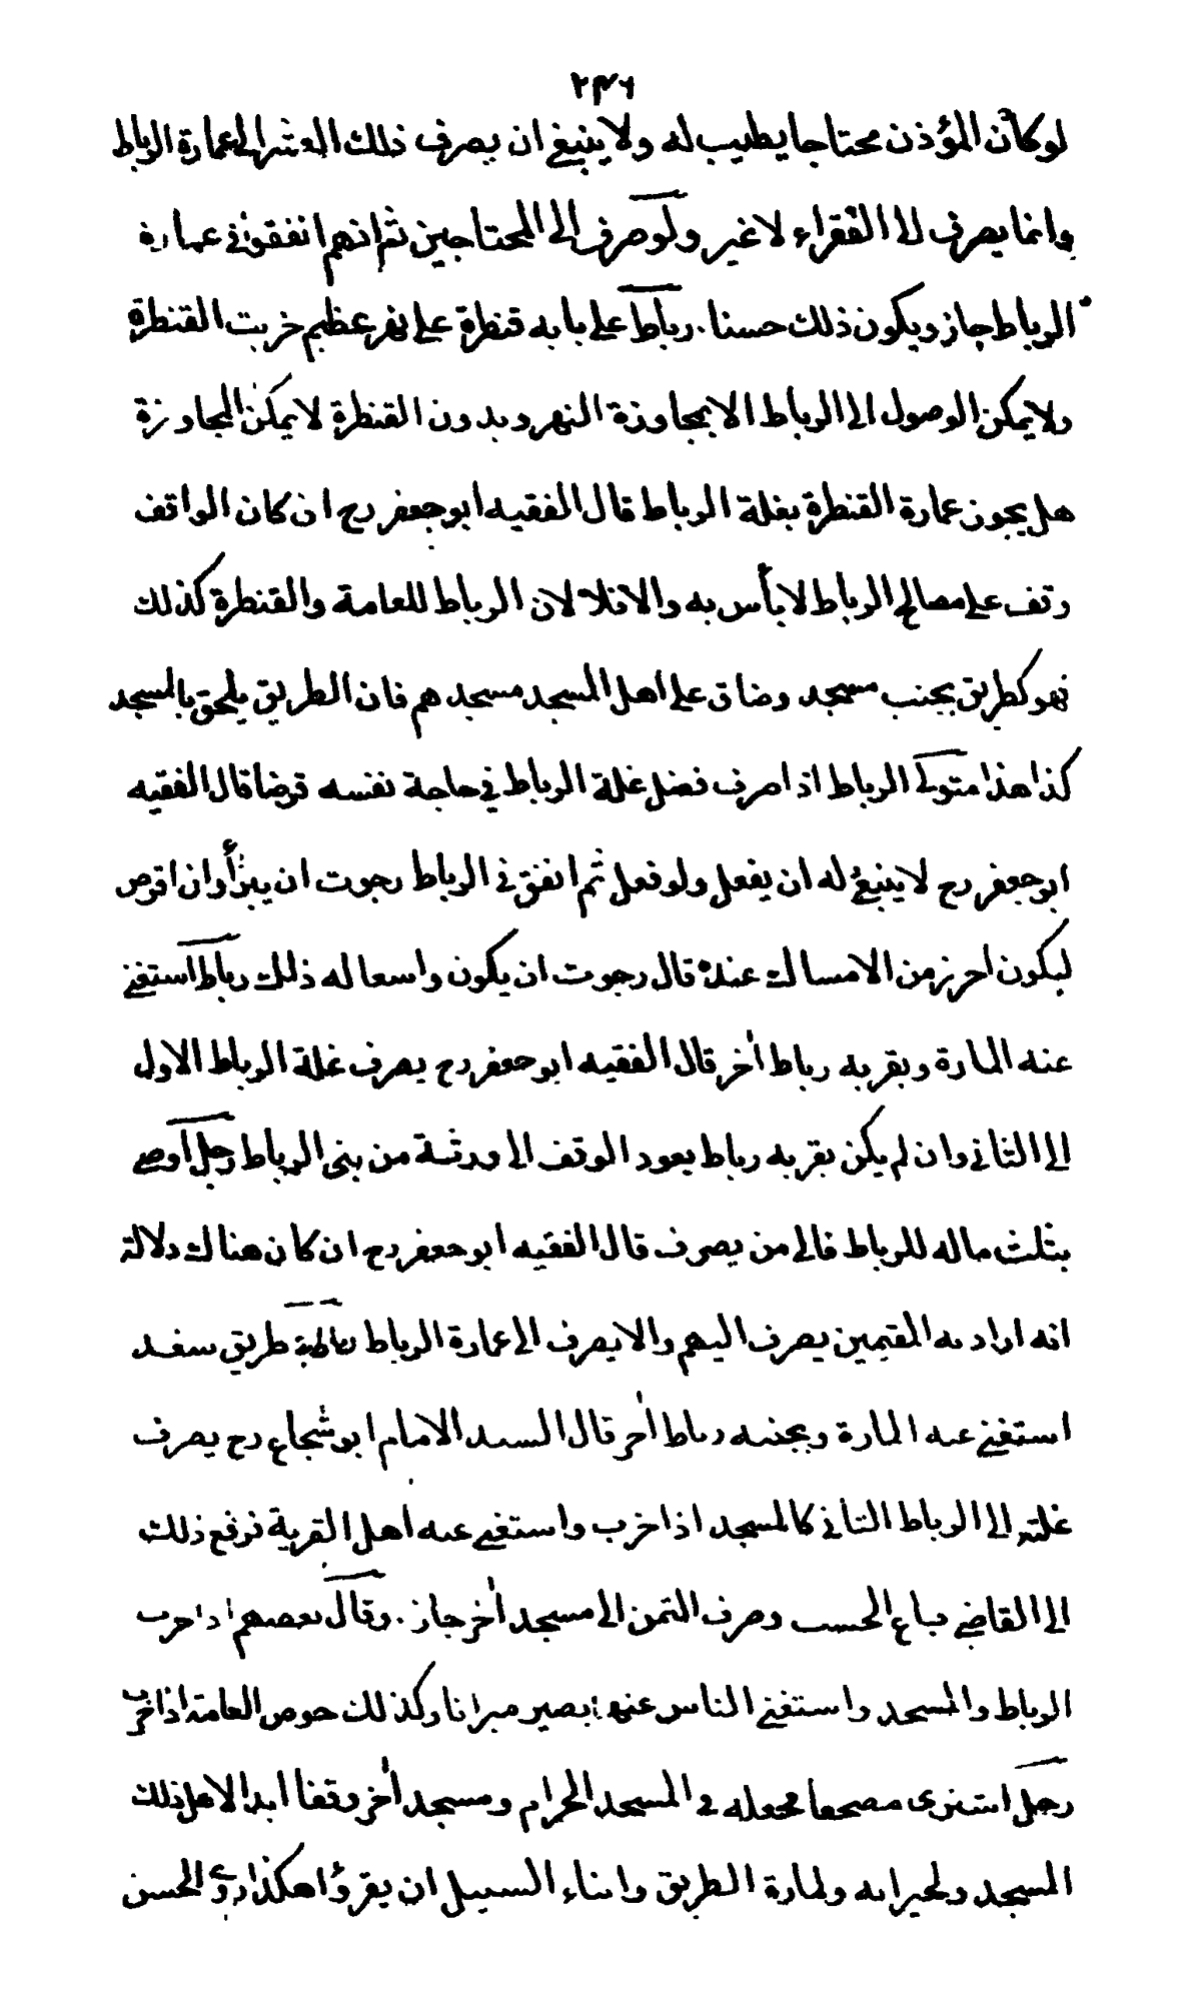 ٢٤٦
لو كان المؤذن محتاجا يطيب له ولا ينبغي ان يصرف ذلك العشر الى عمارة الرباط
وانما يصرف الى الفقراء لا غير ولو صرف الى المحتاجين ثم انهم انفقوا في عمارة
الرباط جاز ويكون ذلك حسنا . رباط على بابه قنطرة على نهر عظيم خربت القنطرة
ولا يمكن الوصول الى الرباط الا بمجاوزة النهر وبدون القنطرة لا يمكن المجاوزة
هل يجوز عمارة القنطرة بغلة الرباط قال الفقيه ابو جعفر رح ان كان الواقف
وقف على مصالح الرباط لا بأس به والا فلا لان الرباط للعامة والقنطرة كذلك
فهو كطريق بجنب مسجد وضاق على اهل المسجد مسجدهم فان الطريق يلحق بالمسجد
كذا هذا متولى الرباط اذا صرف فضل غلة الرباط في حاجة نفسه قرضا قال الفقيه
ابو جعفر رح لا ينبغي له ان يفعل ولو فعل ثم انفق في الرباط رجوت ان يبرأ وان اقرض
ليكون احرز من الامساك عنده قال رجوت ان يكون واسعا له ذلك رباط استغنى
عنه المارة وبقربه رباط أخر قال الفقيه ابو جعفر رح يصرف غلة الرباط الاول
الى الثاني وان لم يكن بقربه رباط يعود الوقف الى ورثة من بنى الرباط رجل اوصى
بثلث ماله للرباط فالى من يصرف قال الفقيه ابو جعفر رح ان كان هناك دلالة
انه اراد به المقيمين يصرف اليهم والا يصرف الى عمارة الرباط طريق سغد
استغنى عنه المارة وبجنبه رباط أخر قال السيد الامام ابو شجاع رح يصرف
غلته الى الرباط الثاني كالمسجد اذا خرب واستغنى عنه اهل القرية فرفع ذلك
الى القاضي فباع الخشب وصرف الثمن الى مسجد أخر جاز . وقال بعضهم اذا خرب
الرباط والمسجد واستغنى الناس عنها يصير ميراثا وكذلك حوض العامة اذا خرب
رجل اشترى مصحفا فجعله في المسجد الحرام ومسجد أخر وقفا ابدا لاهل ذلك
المسجد ولجيرانه ولمارة الطريق وابناء السبيل ان يقرؤا هكذا روى الحسن